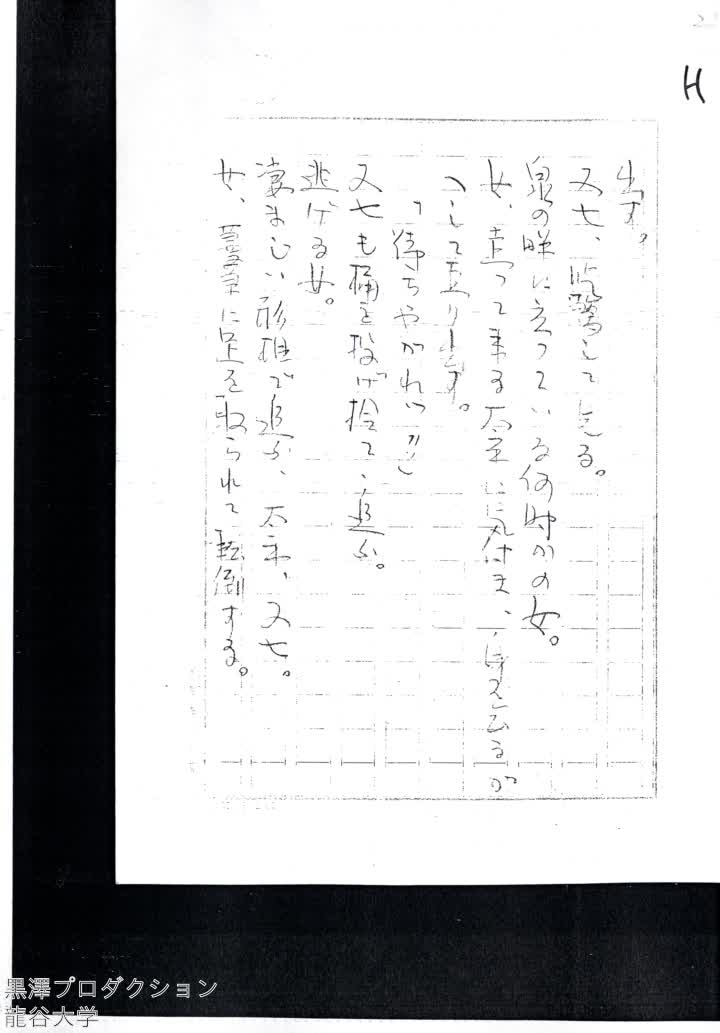 H
出す。
又七、吃驚して見る。
泉の畔に立っている何時かの女。
女、走って来る太平に気付き、身を
して走り出す。
「待ちやがれッ‼」
又七も桶を投げ捨て、追ふ。
逃げる女。
凄まじい形相で追ふ、太平、又七。
女、蔓草に足を取られて転倒する。
黒澤プロダクション
龍谷大学